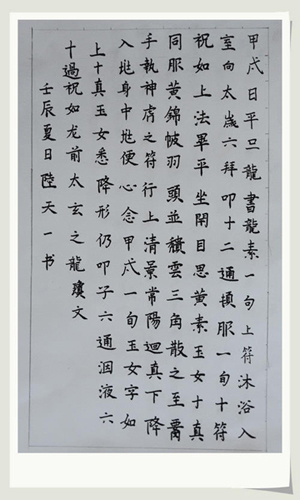 甲戌日平旦龍書龍素一句上符沐浴入
室向太歲六拜叩十二通頓服一旬十符
祝如上法畢平坐閉目思黃素玉女十真
同服黃錦帔羽頭並頹雲三角散之至
手執神虎之符行上清景常陽迴真下降
入地身中地便心念甲戌一旬玉女字如
上十真玉女悉降形仍叩子六通洇液六
十過祝如龙前太玄之龍文
壬辰夏日陸天一书